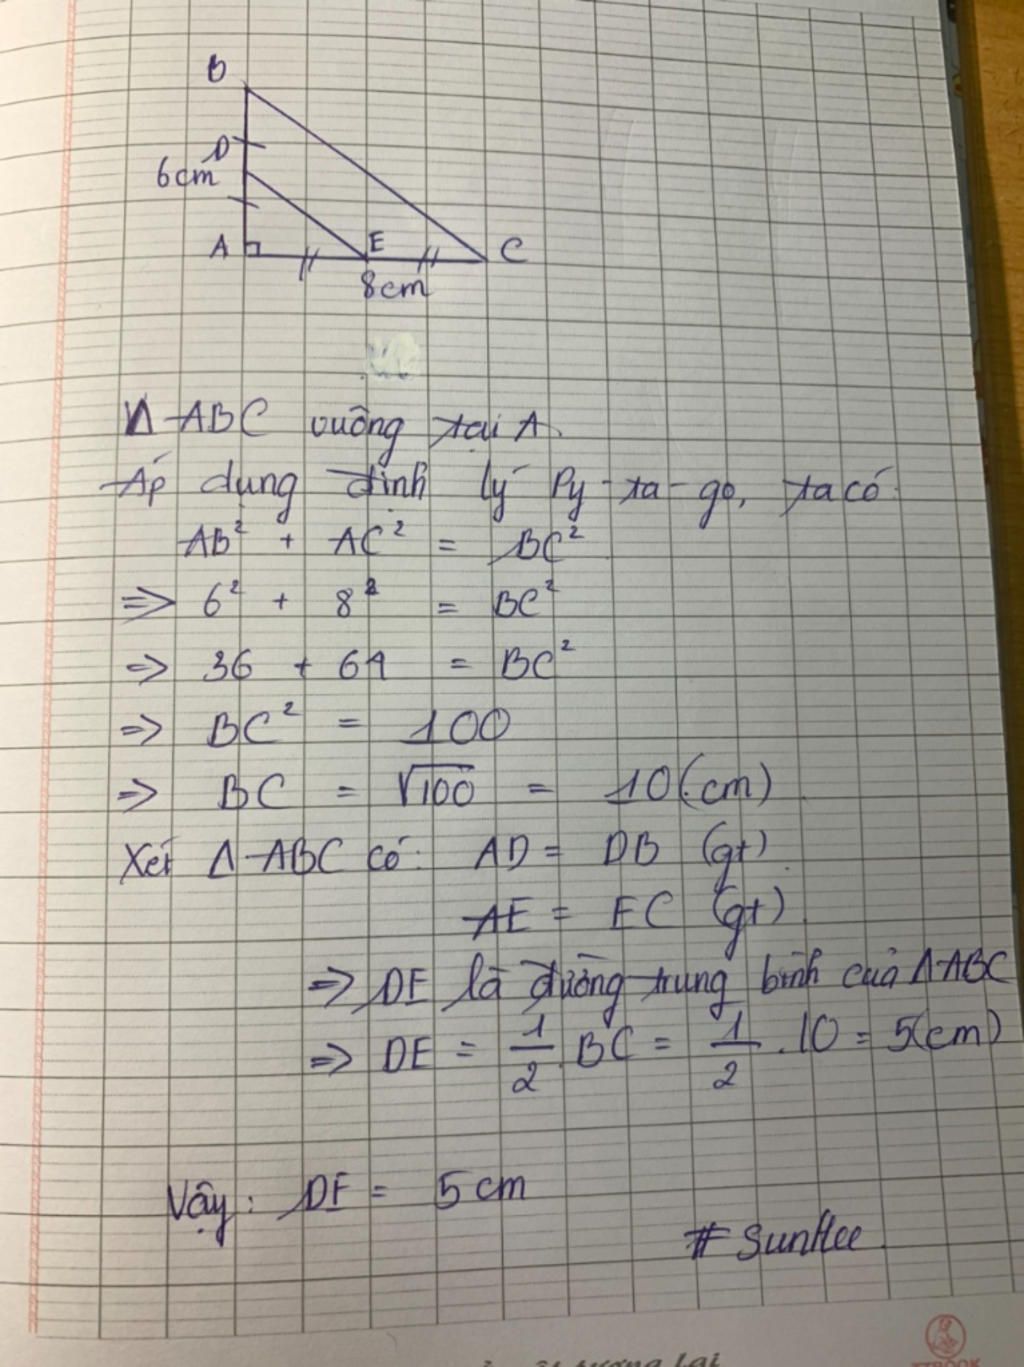 B
D
6cm
A
E
C
8cm
Δ ABC vuông tại A.
Áp dụng định lý Py-ta-go, ta có:
AB² + AC² = BC²
=> 6² + 8² = BC²
=> 36 + 64 = BC²
=> BC² = 100
=> BC = √100 = 10(cm)
Xét Δ ABC có: AD = DB (gt)
AE = EC (gt)
=> DE là đường trung bình của Δ ABC
=> DE = 1/2 BC = 1/2 . 10 = 5(cm)
Vậy: DE = 5 cm
# SunHee